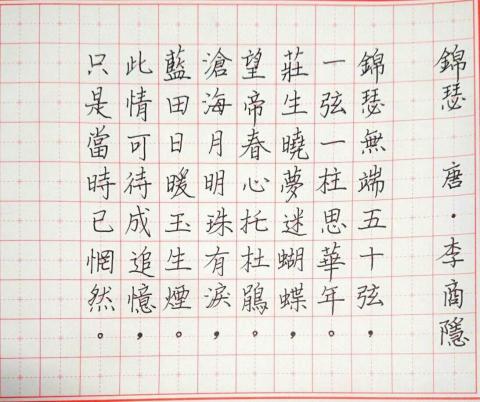 錦瑟 唐·李商隱
錦瑟無端五十弦，
一弦一柱思華年。
莊生曉夢迷蝴蝶，
望帝春心托杜鵑。
滄海月明珠有淚，
藍田日暖玉生煙。
此情可待成追憶，
只是當時已惘然。